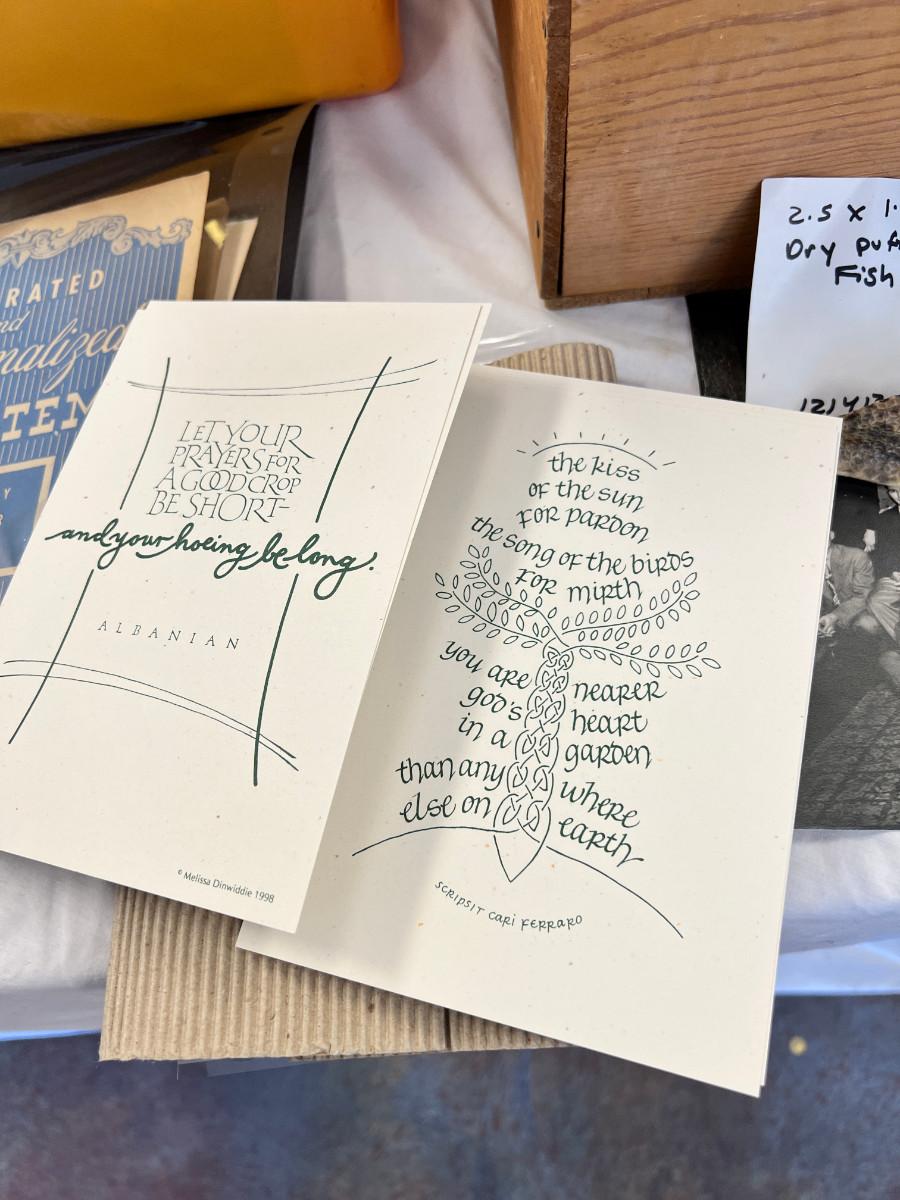 RATED
nd
TEN
Y
LET YOUR
PRAYERS FOR
A GOOD CROP
BE SHORT-
and your hoeing be long!
ALBANIAN
© Melissa Dinwiddie 1998
the kiss
of the sun
for pardon
the song of the birds
for mirth
you are nearer
god's heart
in a garden
than any where
else on earth
SCRIPSIT CARI FERRARO
2.5 x 1.
Dry puf
Fish